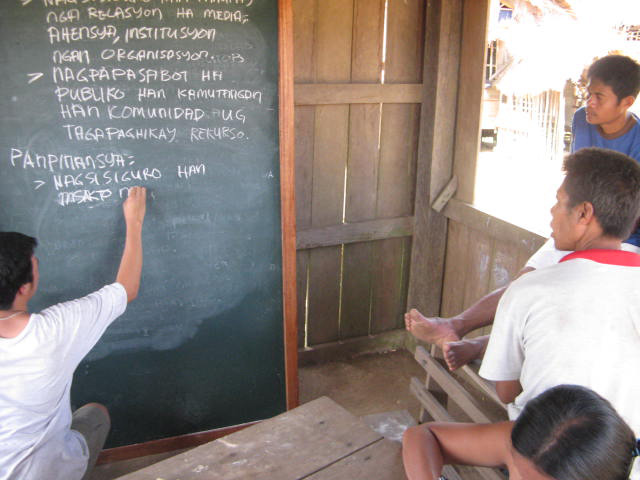 > NAGSISIGURO HAN
NGA RELASYON HA MEDIA,
AHENSYA, INSTITUSYON
NGAN ORGANISASYON.
> NAGPAPASABOT HA
PUBLIKO HAN KAMUTANGAN
HAN KOMUNIDAD UG
TAGAPAGHIKAY REKURSO.
PANPINANSYA:
> NAGSISIGURO HAN